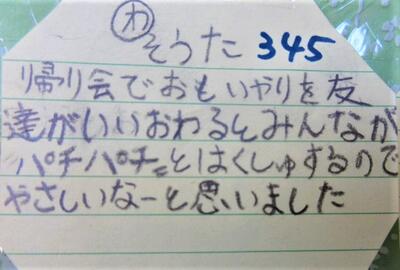 わ
そうた 345
帰り会でおもいやりを友
達がいいおわるとみんなが
パチパチとはくしゅするので
やさしいなーと思いました